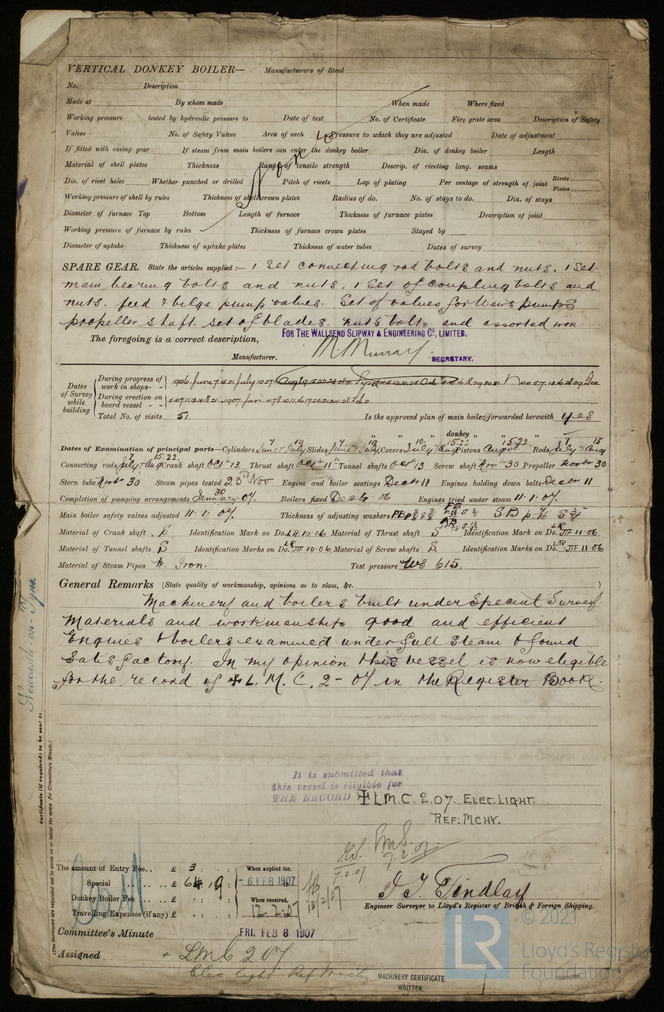 VERTICAL DONKEY BOILER— Manufacturers of Steel
No. Description
Made at By whom made When made Where fixed
Working pressure tested by hydraulic pressure to Date of test No. of Certificate Fire grate area Description of Safety
Valves No. of Safety Valves Area of each Pressure to which they are adjusted Date of adjustment
If fitted with casing gear If steam from main boilers can enter the donkey boiler Dia. of donkey boiler Length
Material of shell plates Thickness Range of tensile strength Descrip. of riveting long. seams
Dia. of rivet holes Whether punched or drilled Pitch of rivets Lap of plating Per centage of strength of joint Rivets Plates
Working pressure of shell by rules Thickness of shell crown plates Radius of do. No. of stays to do. Dia. of stays
Diameter of furnace Top Bottom Length of furnace Thickness of furnace plates Description of joint
Working pressure of furnace by rules Thickness of furnace crown plates Stayed by
Diameter of uptake Thickness of uptake plates Thickness of water tubes Dates of survey
SPARE GEAR. State the articles supplied:— 1 set connecting rod bolts and nuts. 1 set
main bearing bolts and nuts. 1 set of coupling bolts and
nuts. feed & bilge pump valves. Set of valves for Weirs pumps
propeller shaft. set of blades, nuts bolts and assorted iron
The foregoing is a correct description,
FOR THE WALLSEND SLIPWAY & ENGINEERING Co, LIMITED.
Manufacturer. M Murray SECRETARY.
Dates of Survey while building
During progress of work in shops--
During erection on board vessel---
Total No. of visits 51 Is the approved plan of main boiler forwarded herewith yes
donkey
Dates of Examination of principal parts—Cylinders Slides Covers Pistons Rods
Connecting rods Crank shaft Oct 13 Thrust shaft Oct 11 Tunnel shafts Oct 13 Screw shaft Nov 30 Propeller Nov 30
Stern tube Nov 30 Steam pipes tested 23rd Nov Engine and boiler seatings Dec 11 Engines holding down bolts Dec 11
Completion of pumping arrangements January 07. Boilers fixed Dec 6 06 Engines tried under steam 11.1.07.
Main boiler safety valves adjusted 11.1.07. Thickness of adjusting washers
Material of Crank shaft S Identification Mark on Do. Material of Thrust shaft S Identification Mark on Do.
Material of Tunnel shafts S Identification Marks on Do. Material of Screw shafts S Identification Marks on Do.
Material of Steam Pipes W. Iron. Test pressure 615.
General Remarks (State quality of workmanship, opinions as to class, &c.
Machinery and boilers built under Special Survey
Materials and workmanship good and efficient
Engines & boilers examined under full steam & found
Satisfactory. In my opinion this vessel is now eligible
for the record of ✠ L.M.C. 2-07 in the Register Book.
Newcastle-on-Tyne
It is submitted that
this vessel is eligible for
THE RECORD ✠ LMC. 2.07. ELEC: LIGHT.
REF: MCHY.
7.2.07
The amount of Entry Fee.. £ 3 When applied for.
Special £ 64 19 - 6 FEB 1907
Donkey Boiler Fee £ When received,
Travelling Expenses (if any) £ 12.2.07
J T Findlay
Engineer Surveyor to Lloyd's Register of British & Foreign Shipping.
Committee's Minute FRI. FEB 8 1907
Assigned + LMC 2 07
Elec light Ref Mchy
MACHINERY CERTIFICATE
WRITTEN.
© 2021
LR Lloyd's Register
Foundation